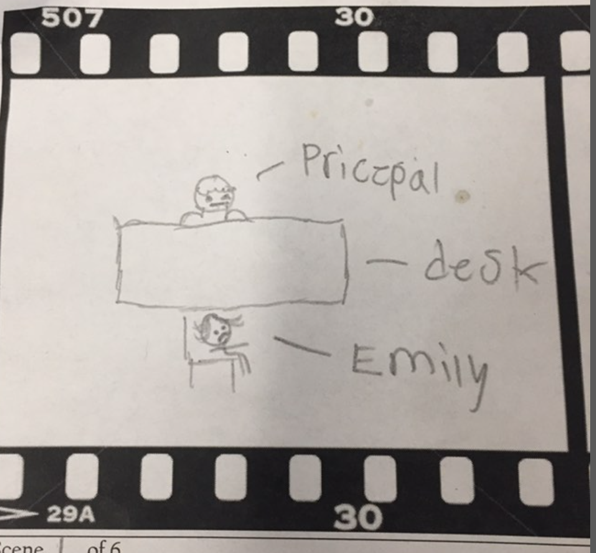 507 30
Priccpal
desk
Emily
29A 30
Scene 1 of 6